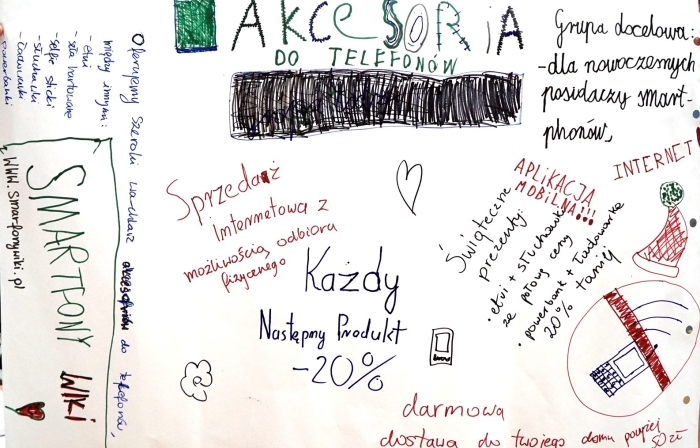 AKCESORiA
DO TELEFONÓW
Grupa docelowa:
-dla nowoczesnych
posiadaczy smart-
phonów,
Oferujemy szeroki wachlarz akcesoriów do telefonów,
między innymi:
- etui
- szkła hartowane
- selfie sticki
- słuchawki
- ładowarki
- powerbanki
SMARTFONY
WIKI
www.smarfonywiki.pl
Sprzedaż
Internetowa z
możliwością odbioru
fizycznego
Każdy
Następny Produkt
-20%
INTERNET
APLiKACJA
MOBiLNA!!!
Świąteczne
prezenty:
• etui + słuchawki
za połowę ceny
• powerbank + ładowarka
20% taniej
darmowa
dostawa do twojego domu powyżej 50 zł